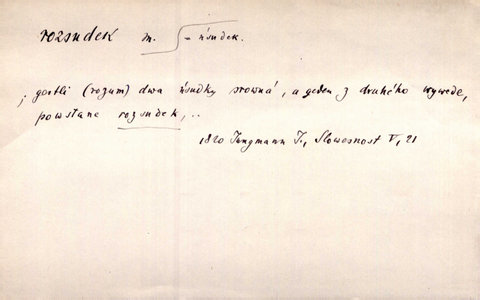 rozsudek m. – úsudek.
; gestli (rozum) dwa úsudky srowná, a geden z druhého wywede,
powstane rozsudek, ..
1820 Jungmann J., Slowesnost V, 21